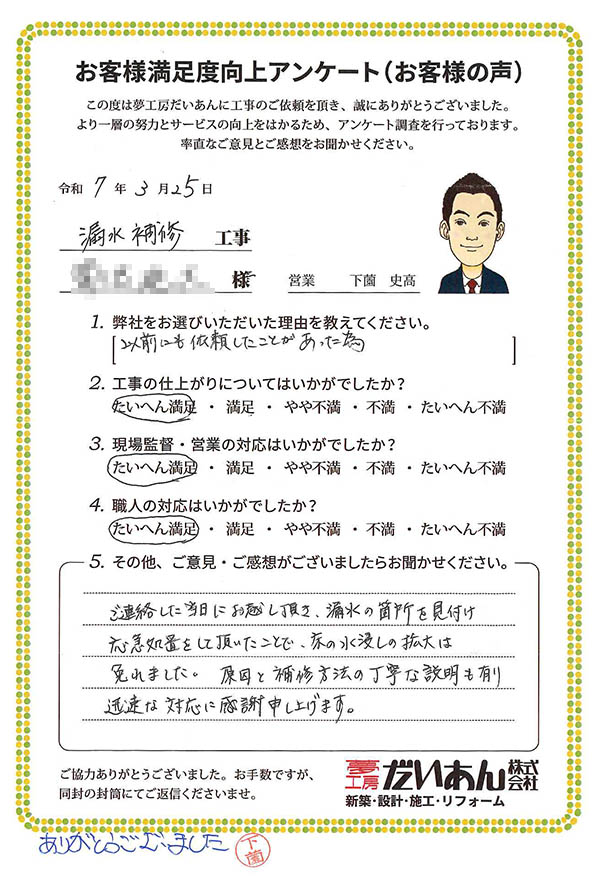 お客様満足度向上アンケート（お客様の声）
この度は夢工房だいあんに工事のご依頼を頂き、誠にありがとうございました。
より一層の努力とサービスの向上をはかるため、アンケート調査を行っております。
率直なご意見とご感想をお聞かせください。
令和 7 年 3 月 25 日
漏水補修 工事
様 営業 下薗 史高
1. 弊社をお選びいただいた理由を教えてください。
以前にも依頼したことがあった為
2. 工事の仕上がりについてはいかがでしたか？
たいへん満足 ・ 満足 ・ やや不満 ・ 不満 ・ たいへん不満
3. 現場監督・営業の対応はいかがでしたか？
たいへん満足 ・ 満足 ・ やや不満 ・ 不満 ・ たいへん不満
4. 職人の対応はいかがでしたか？
たいへん満足 ・ 満足 ・ やや不満 ・ 不満 ・ たいへん不満
5. その他、ご意見・ご感想がございましたらお聞かせください。
ご連絡した当日にお越し頂き、漏水の箇所を見付け
応急処置をして頂いたことで、床の水浸しの拡大は
免れました。原因と補修方法の丁寧な説明も有り
迅速な対応に感謝申し上げます。
ご協力ありがとうございました。お手数ですが、
同封の封筒にてご返信くださいませ。
夢工房 だいあん 株式会社
新築・設計・施工・リフォーム
ありがとうございました 下薗